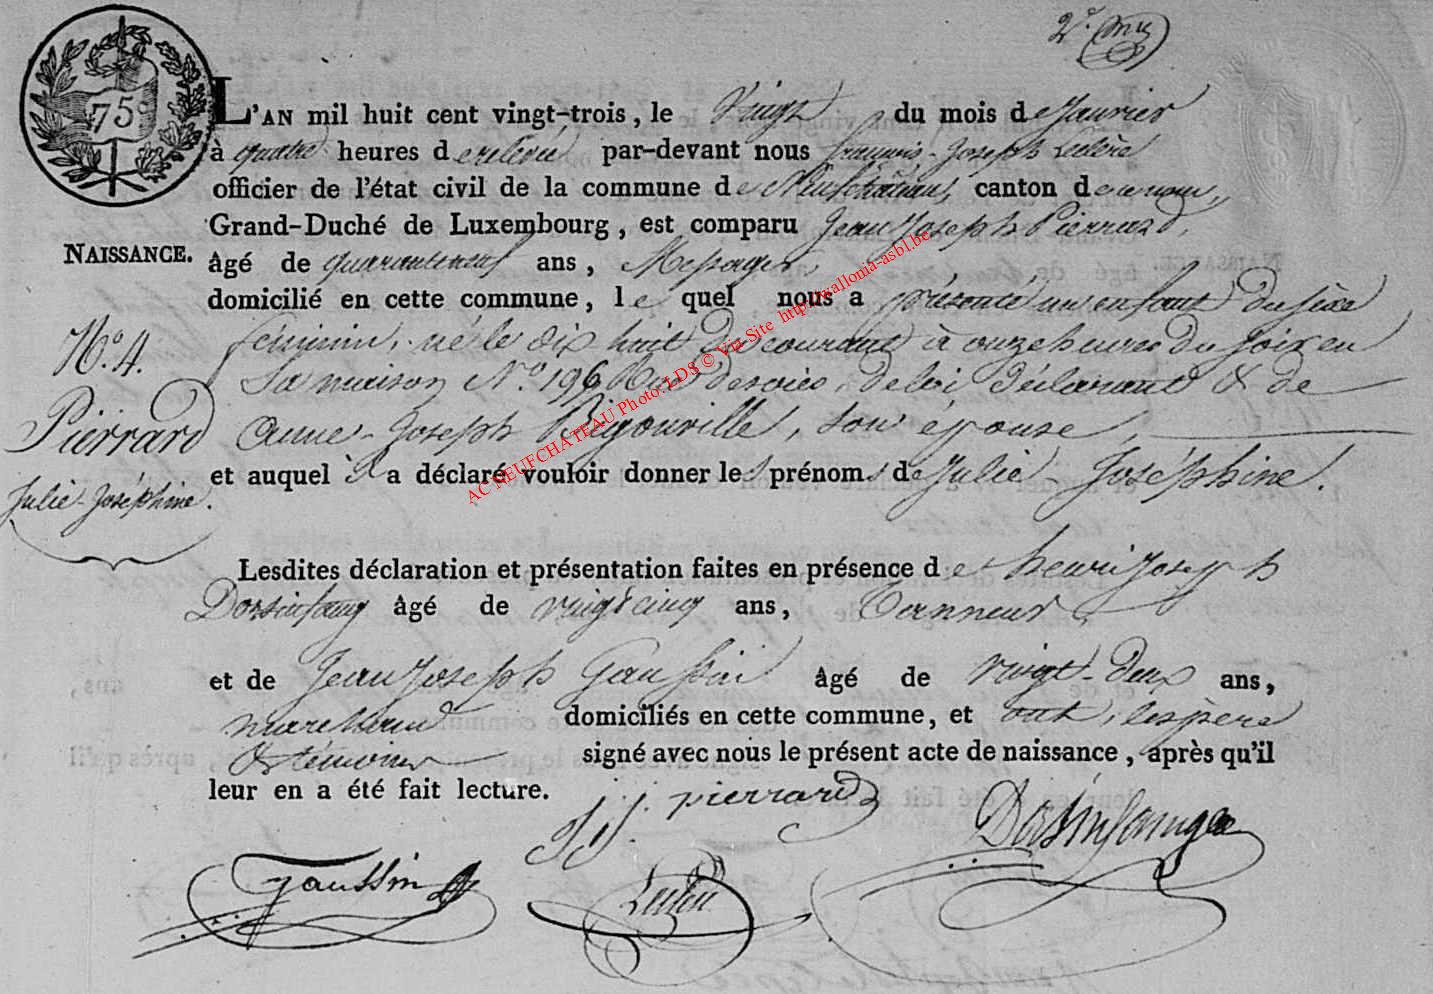 75c
L'AN mil huit cent vingt-trois, le Vingt du mois de Janvier
à quatre heures de relevé par-devant nous françois-Joseph Leclère
officier de l'état civil de la commune de Neufchateau, canton de ce nom,
Grand-Duché de Luxembourg, est comparu Jean Joseph Pierrard,
NAISSANCE.
âgé de quaranteneuf ans, Messager
domicilié en cette commune, le quel nous a présenté un enfant du sèxe
féminin, né le dix huit du courant à onze heures du soir en
Sa maison No. 196 Rue, de lui déclarant & de
Anne-Joseph Bigonville, son épouse,
et auquel il a déclaré vouloir donner les prénoms de Julie-Joséphine.
No. 4.
Pierrard
Julie-Joséphine.
Lesdites déclaration et présentation faites en présence de henri Joseph
Dorsinfang âgé de vingt cinq ans, Tanneur,
et de Jean Joseph Gaussin âgé de vingt-deux ans,
marchand domiciliés en cette commune, et ont, les père
& témoins signé avec nous le présent acte de naissance, après qu'il
leur en a été fait lecture.
J. J. pierrard
Dorsinfang
Gaussin
AC NEUFCHATEAU Photo: LDS © Via Site http://wallonia-asbl.be